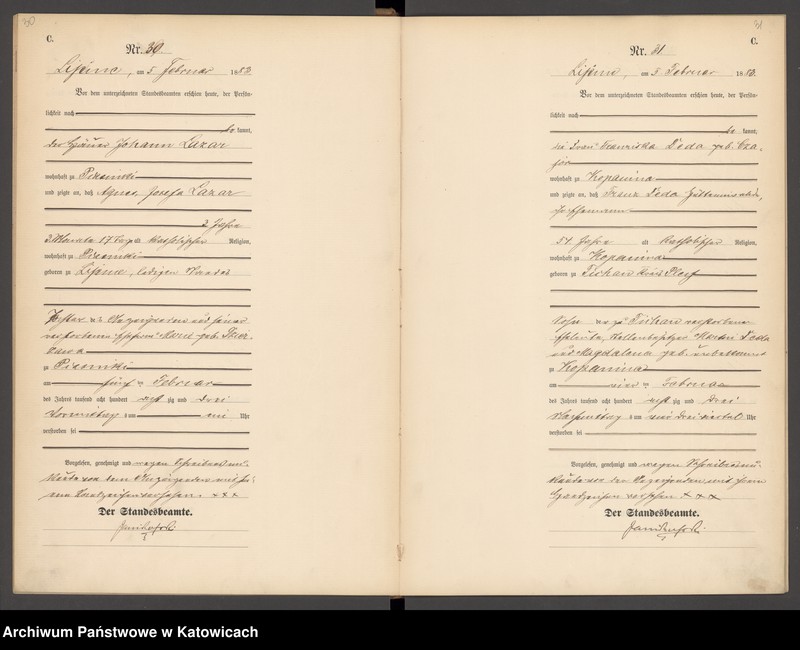 30
C.
Nr. 30.
Lissine, am 5. Februar 1883
Vor dem unterzeichneten Standesbeamten erschien heute, der Persön-
lichkeit nach
be kannt,
der Häuer Johann Lazar
wohnhaft zu
und zeigte an, daß Agnes Josefa Lazar
2 Jahre
3 Monate 17 Tage alt katholischer Religion,
wohnhaft zu
geboren zu
Tochter des Anzeigenden und seiner
verstorbenen Ehefrau Marie geb.
zu
am fünf ten Februar
des Jahres tausend acht hundert acht zig und drei
Vormittags um ein Uhr
verstorben sei
Vorgelesen, genehmigt und wegen Schreibensun-
kunde von dem Anzeigenden mit sei-
nem Handzeichen versehen. + + +
Der Standesbeamte.
31
C.
Nr. 31
am 5. Februar 1883.
Vor dem unterzeichneten Standesbeamten erschien heute, der Persön-
lichkeit nach
be kannt,
die Frau Franziska Deda geb. Cza-
jor
wohnhaft zu Kopanina
und zeigte an, daß Franz Deda
ihr Ehemann
54 Jahre alt katholischer Religion,
wohnhaft zu Kopanina
geboren zu Tichau Kreis Pleß
Sohn der zu Tichau verstorbenen
Eheleute, Martin Deda
und Magdalena geb. unbekannt
zu Kopanina
am vier ten Februar
des Jahres tausend acht hundert acht zig und drei
Nachmittags um ein drei viertel Uhr
verstorben sei
Vorgelesen, genehmigt und wegen Schreibensun-
kunde von der Anzeigenden mit ihrem
Handzeichen versehen + + +
Der Standesbeamte.
Archiwum Państwowe w Katowicach